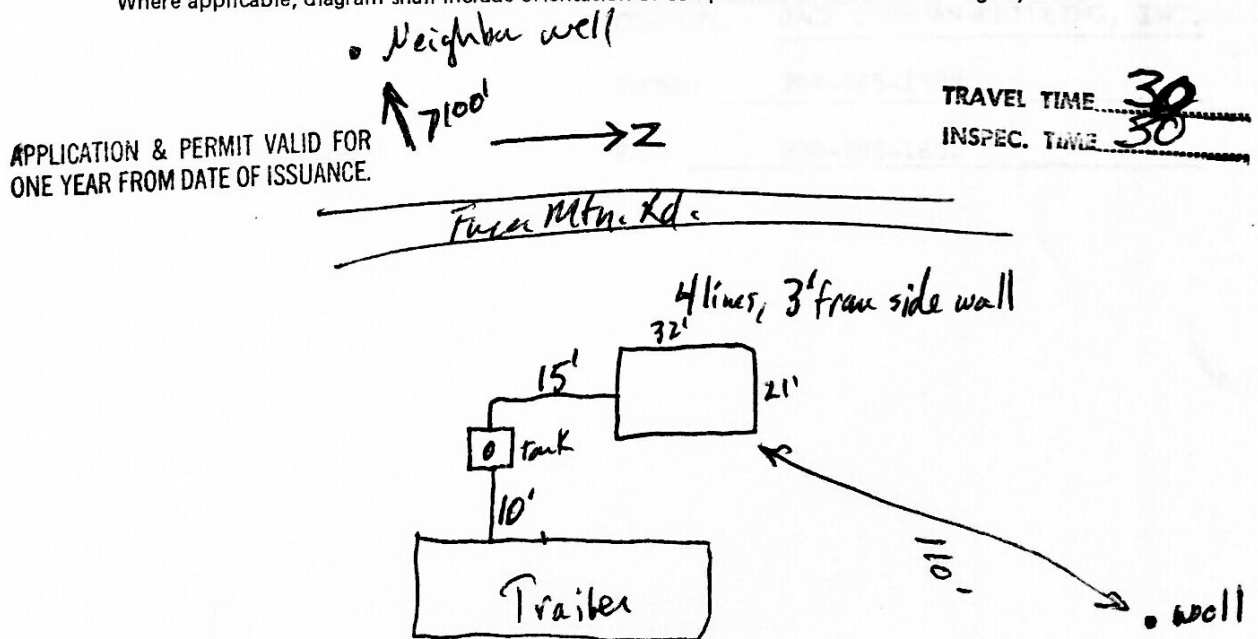 Where applicable, diagram shall include orientation or
• Neighbor well
>100'
→ N
TRAVEL TIME 30
INSPEC. TIME 30
APPLICATION & PERMIT VALID FOR
ONE YEAR FROM DATE OF ISSUANCE.
Mtn. Rd.
4 lines, 3' from side wall
32'
15'
21'
tank
10'
Trailer
110'
• well